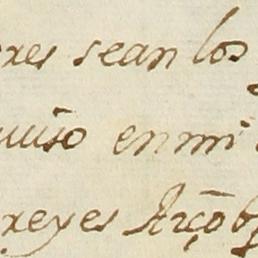 res sean los
uiso en mi
reyes Arçob